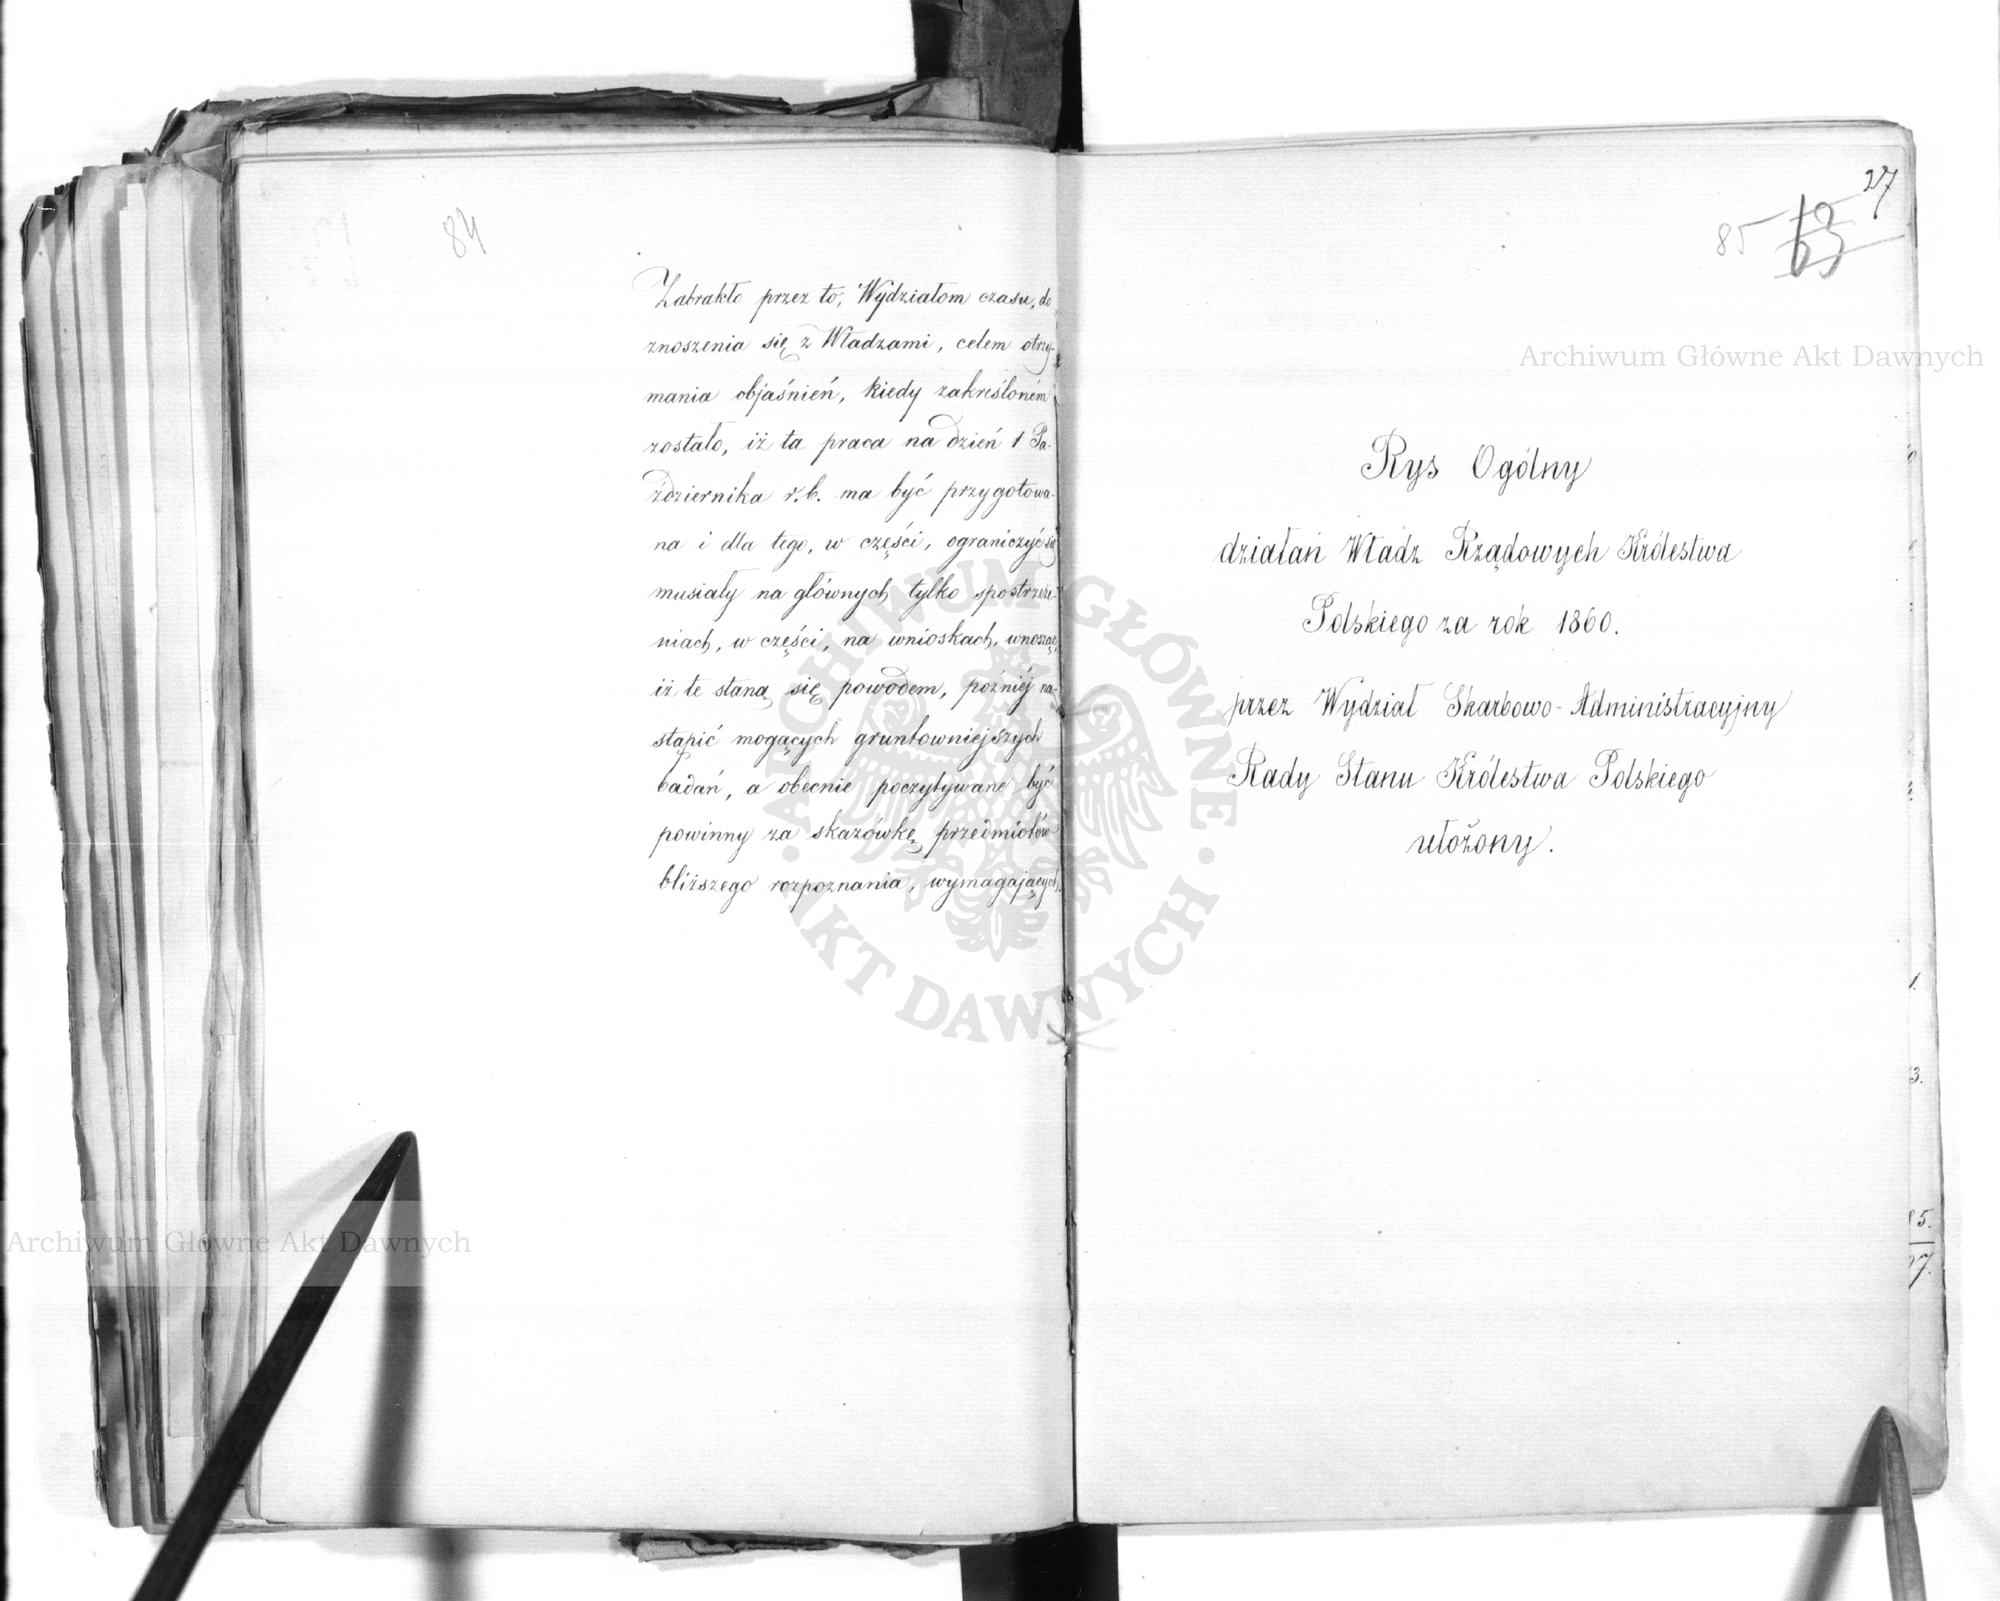 84
Zabrakło przez to, Wydziałom czasu, do
znoszenia się z Władzami, celem otrzy-
mania objaśnień, kiedy zakreśloném
zostało, iż ta praca na dzień 1 Pa-
ździernika r.b. ma być przygotowa-
na i dla tego, w części, ograniczyć się
musiały na głównych tylko spostrzeże-
niach, w części, na wnioskach, wnosząc,
iż te staną się powodem, później na-
stąpić mogących gruntowniejszych
badań, a obecnie poczytywane być
powinny za skazówkę przedmiotów
bliższego rozpoznania, wymagających.
27
85 63
Rys Ogólny
działań Władz Rządowych Królestwa
Polskiego za rok 1860.
przez Wydział Skarbowo-Administracyjny
Rady Stanu Królestwa Polskiego
ułożony.
1.
3.
5.
7.
Archiwum Główne Akt Dawnych
Archiwum Główne Akt Dawnych
ARCHIWUM GŁÓWNE · AKT DAWNYCH ·